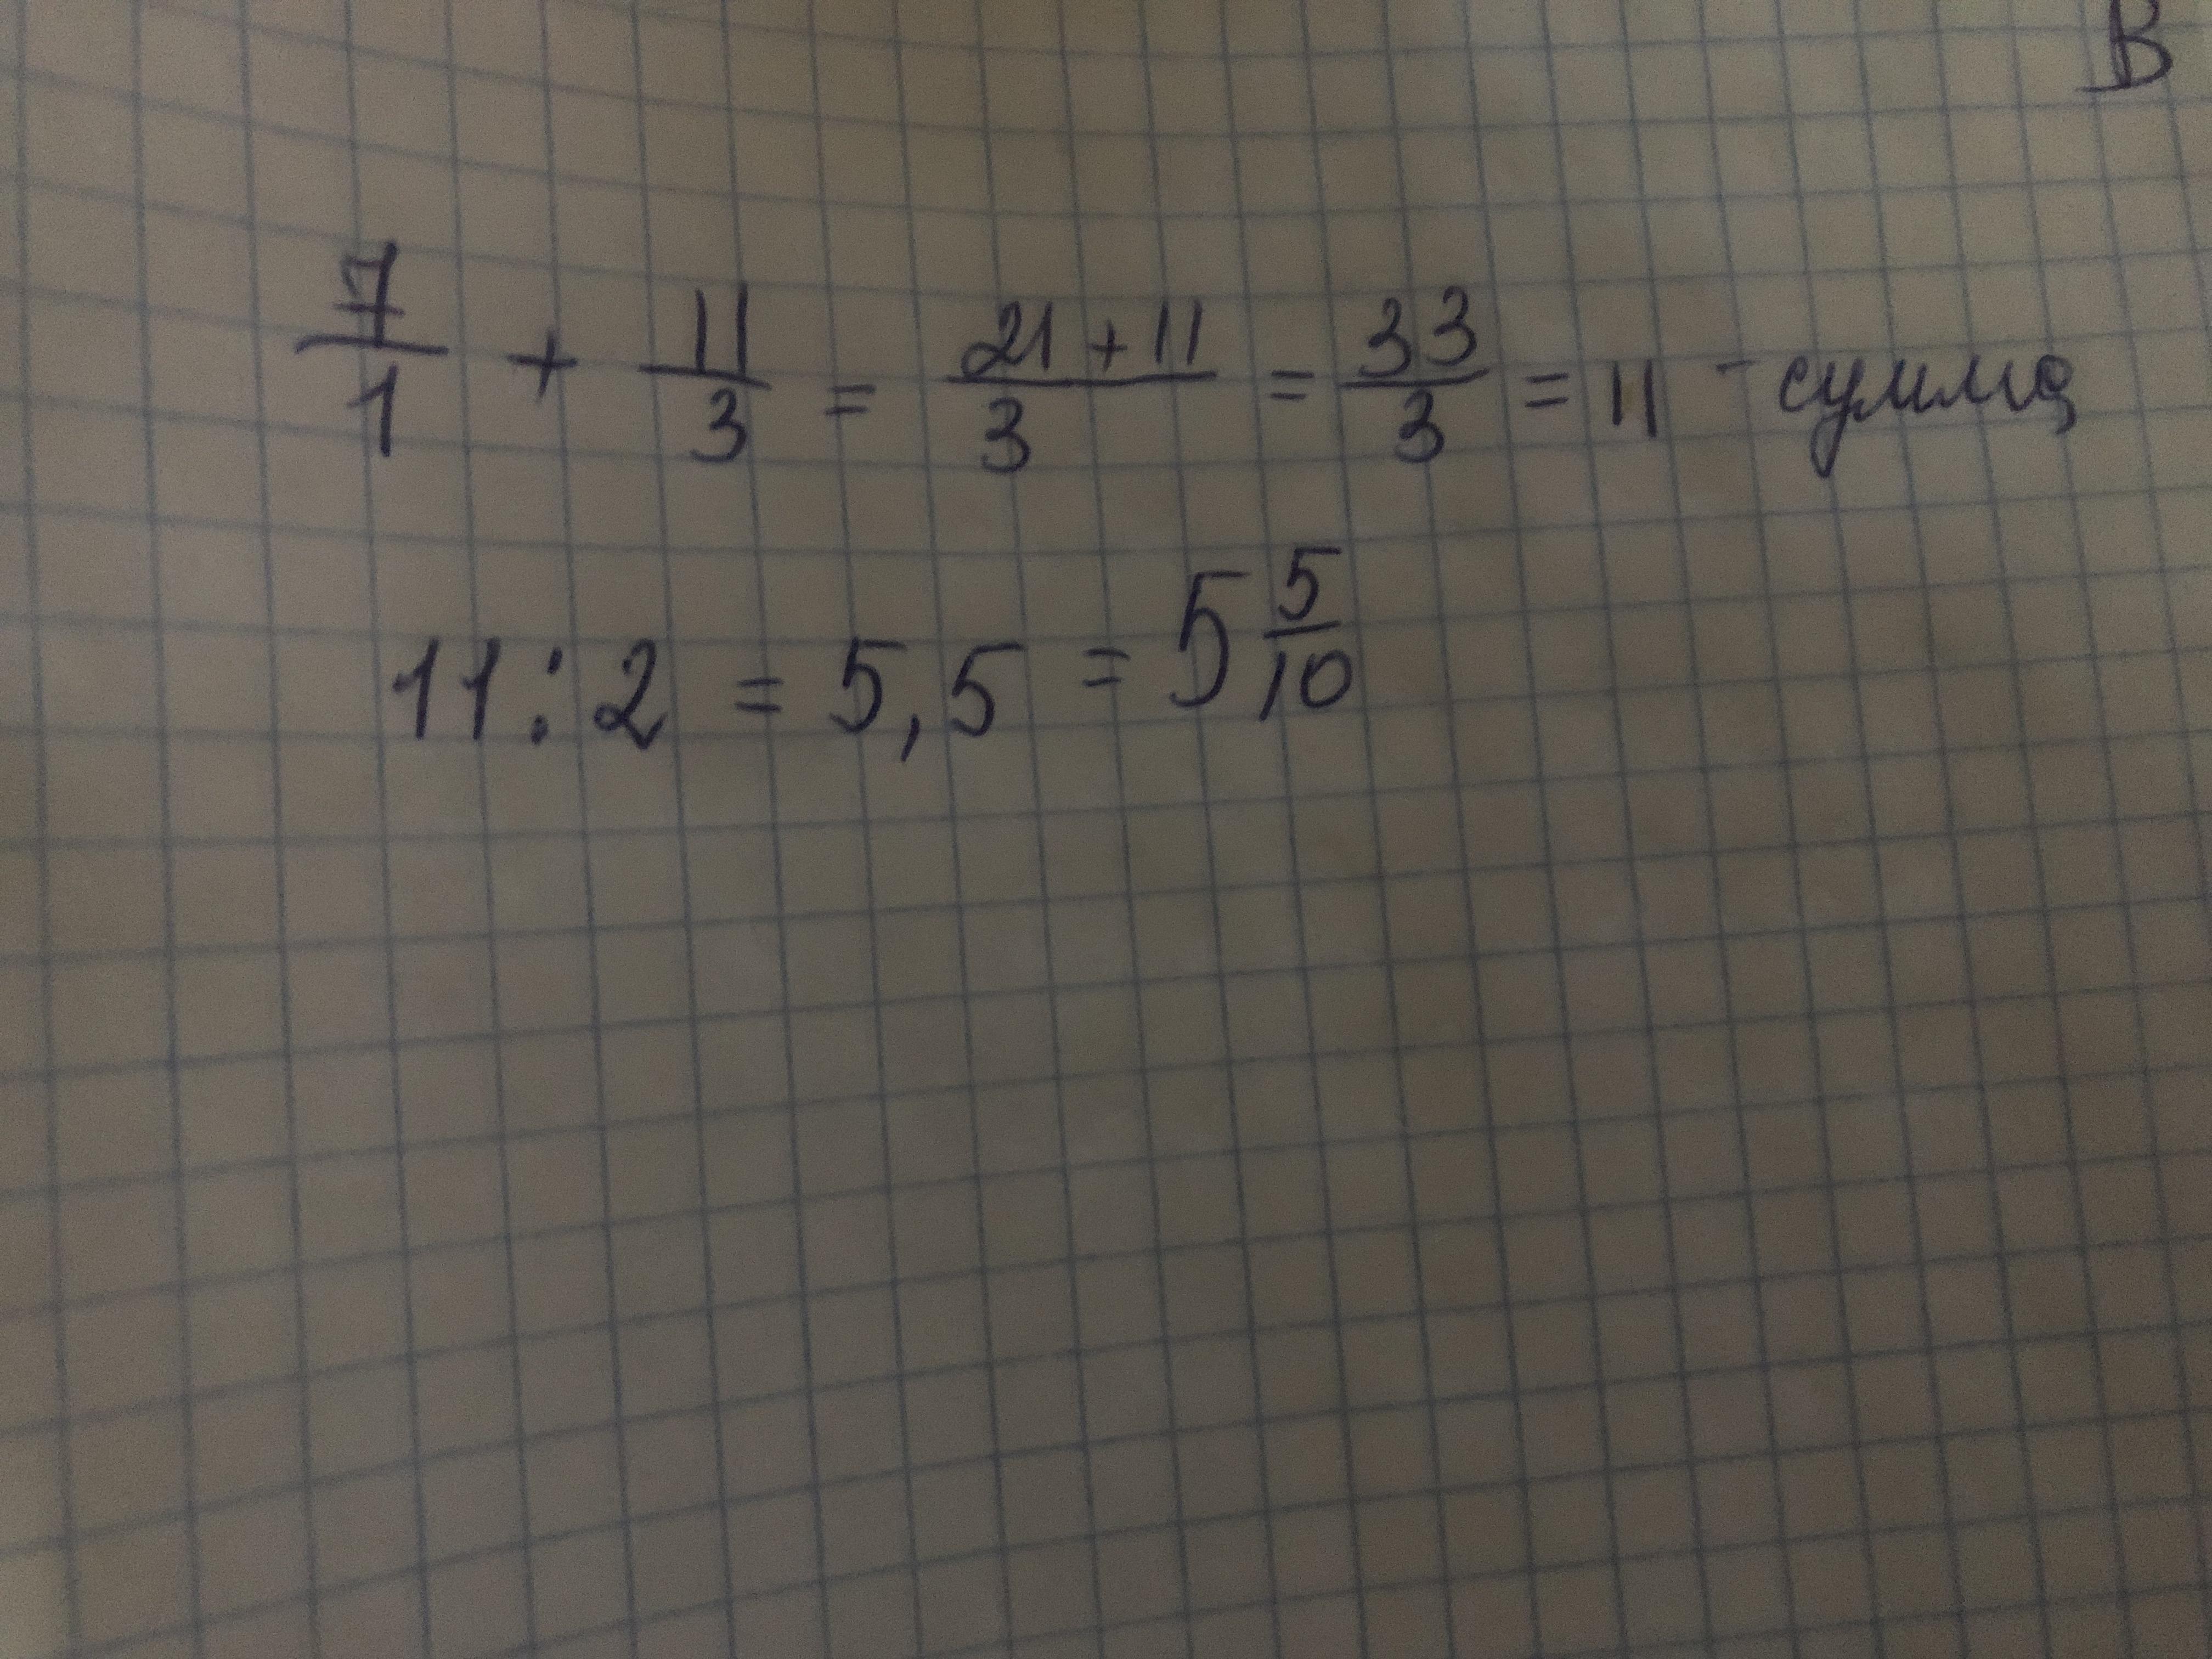 В
7/1 + 11/3 = 21+11/3 = 33/3 = 11 - сумма
11:2 = 5,5 = 5 5/10